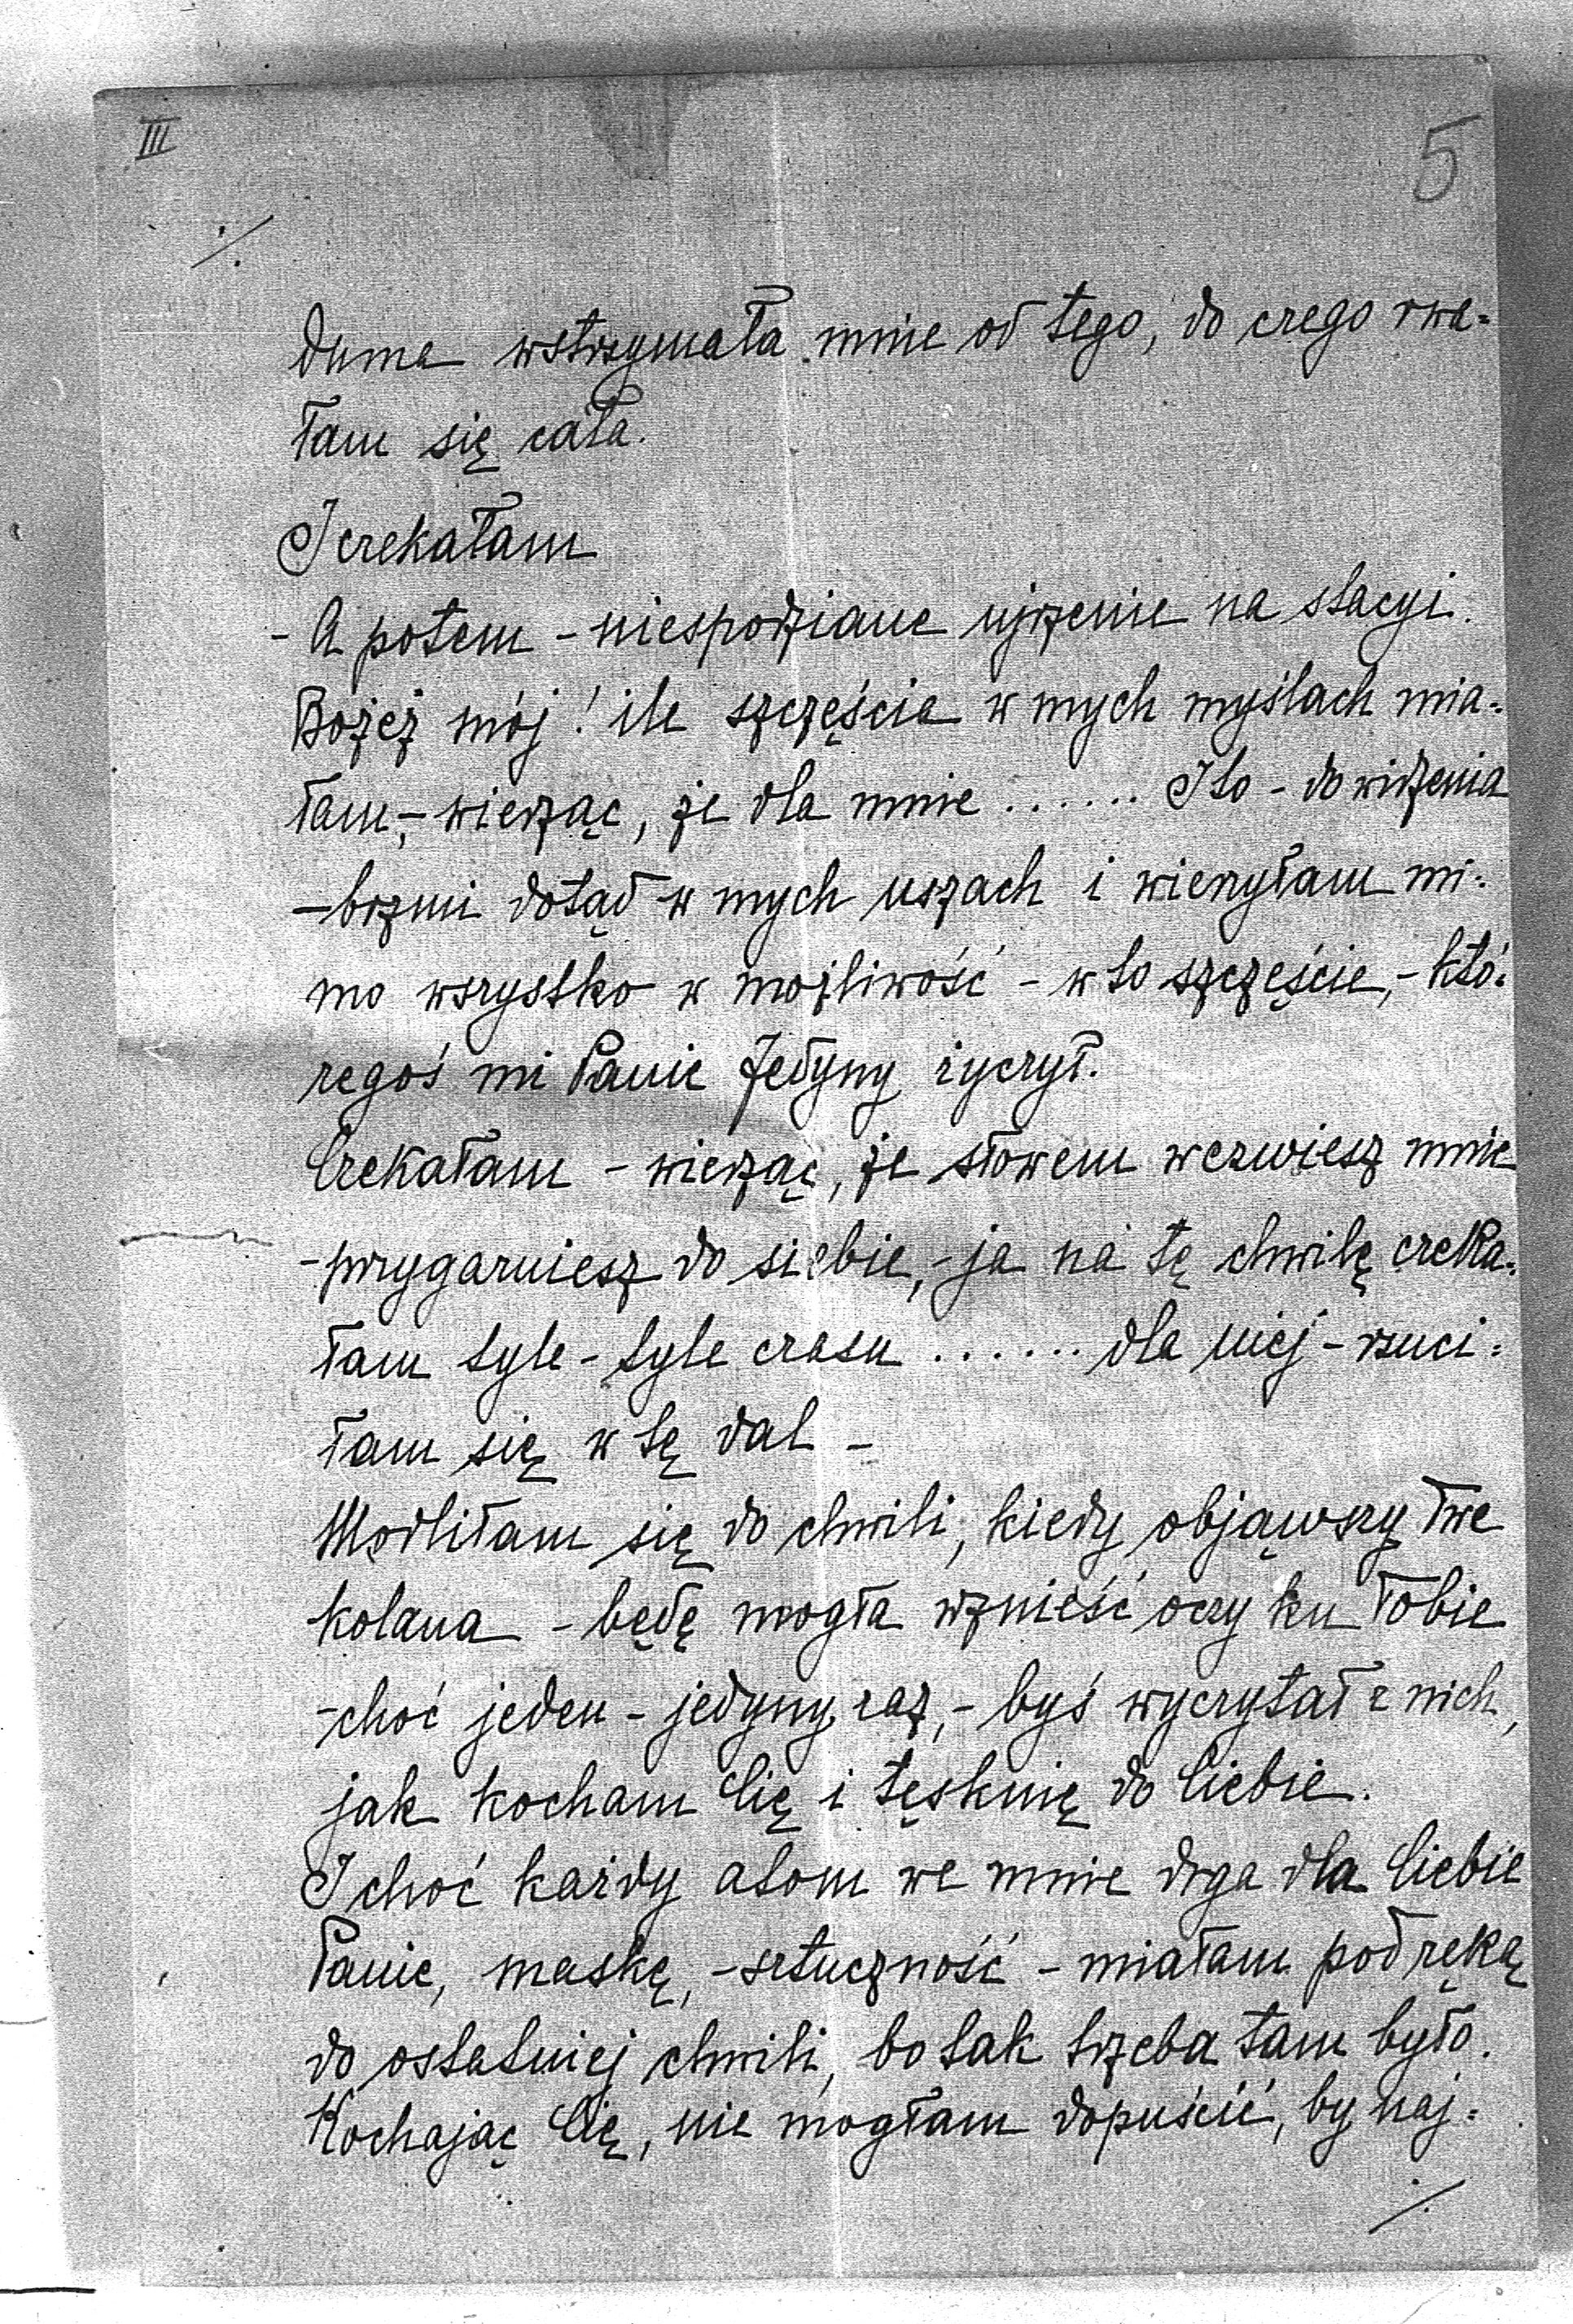 III
5
./.
duma wstrzymała mnie od tego, do czego rwa=
łam się cała.
I czekałam
- A potem - niespodziane ujrzenie na stacyi.
Bożeż mój! ile szczęścia w mych myślach mia=
łam, - wierząc, że dla mnie ...... I to - do widzenia
- brzmi dotąd w mych uszach i wierzyłam mi=
mo wszystko w możliwość - w to szczęście, - któ=
regoś mi Panie Jedyny życzył.
Czekałam - wierząc, że słowem wezwiesz mnie
- przygarniesz do siebie, - ja na tę chwilę czeka=
łam tyle - tyle czasu ...... dla niej - rzuci=
łam się w tę dal -
Modliłam się do chwili, kiedy objąwszy Twe
kolana - będę mogła wznieść oczy ku Tobie
- choć jeden - jedyny raz, - byś wyczytał z nich,
jak kocham Cię i tęsknię do Ciebie.
I choć każdy atom we mnie drga dla Ciebie
Panie, maskę, - sztuczność - miałam pod ręką
do ostatniej chwili, bo tak trzeba tam było.
Kochając Cię, nie mogłam dopuścić, by naj=
./.